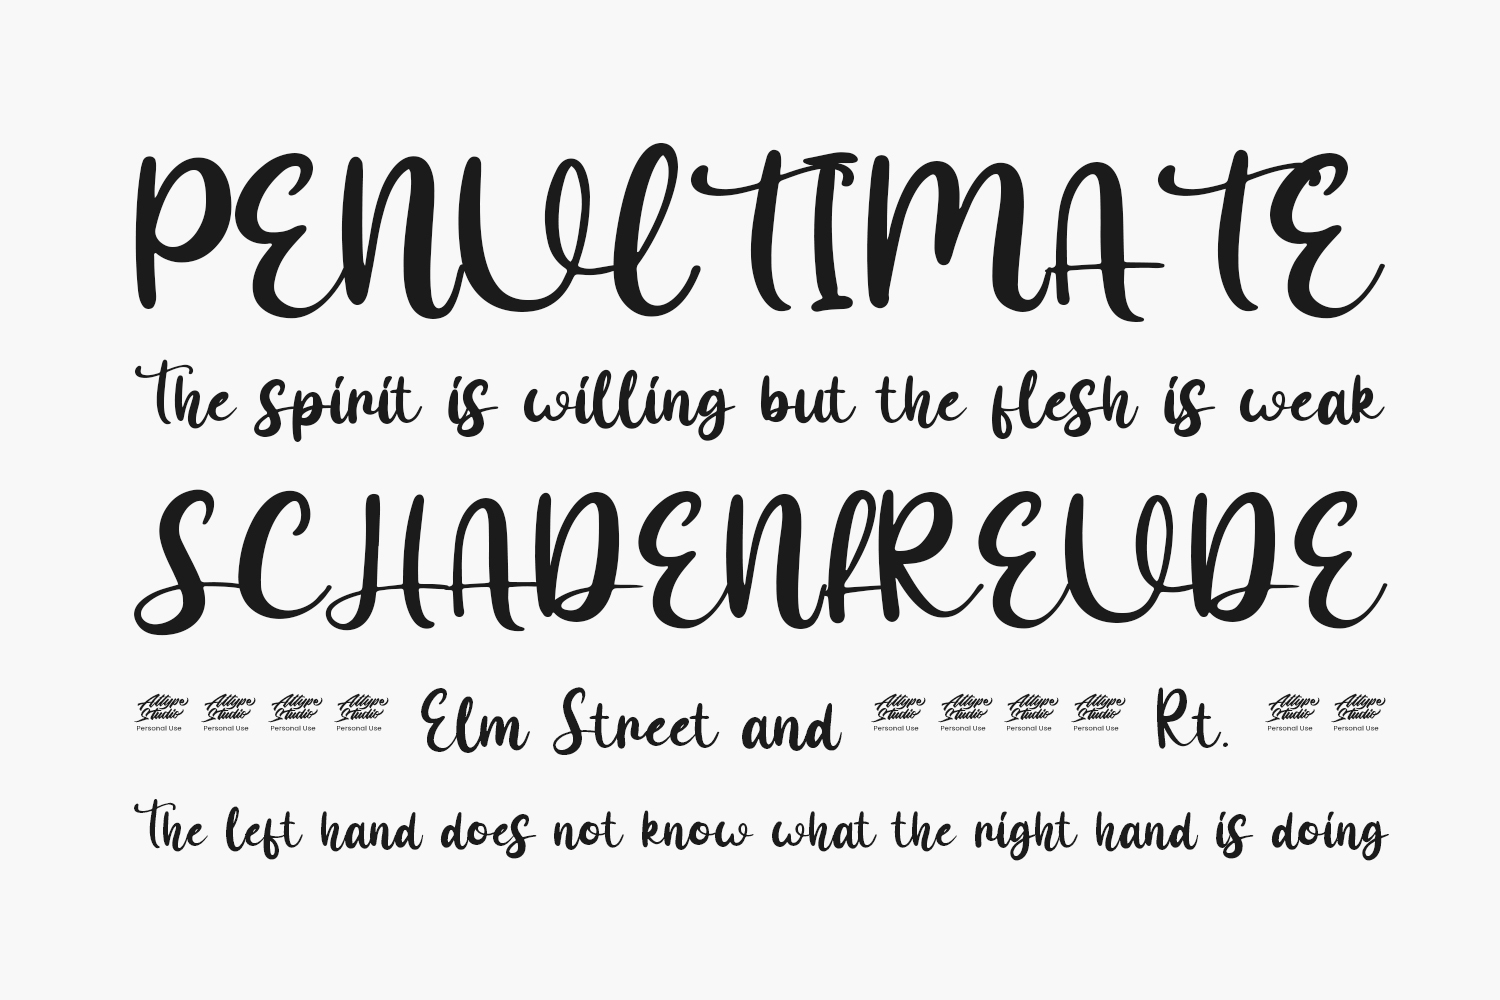 PENULTIMATE
The spirit is willing but the flesh is weak
SCHADENFREUDE
Alltype Studio Personal Use Alltype Studio Personal Use Alltype Studio Personal Use Alltype Studio Personal Use Elm Street and Alltype Studio Personal Use Alltype Studio Personal Use Alltype Studio Personal Use Alltype Studio Personal Use Rt. Alltype Studio Personal Use Alltype Studio Personal Use
The left hand does not know what the right hand is doing